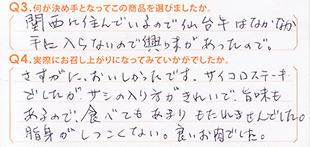 Q3.何が決め手となってこの商品を選びましたか。
関西に住んでいるので仙台牛はなかなか
手に入らないので興味があったので。
Q4.実際にお召し上がりになってみていかがでしたか。
さすがに、おいしかったです。サイコロステーキ
でしたが、サシの入り方がきれいで、旨味も
あるので、食べてもあまりもたれませんでした。
脂身がしつこくない。良いお肉でした。